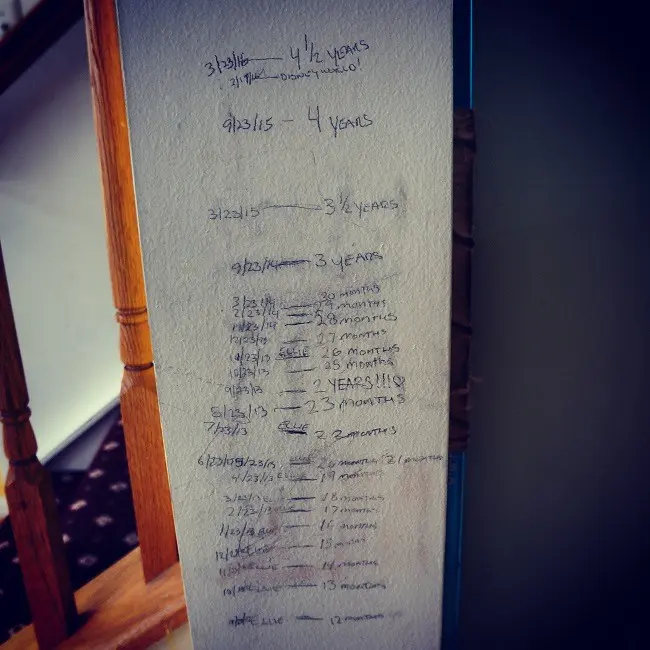 3/23/16 — 4 1/2 YEARS
DISNEY WORLD!
9/23/15 — 4 YEARS
3/23/15 — 3 1/2 YEARS
9/23/14 — 3 YEARS
3/23/14 — 30 MONTHS
2/23/14 — 29 MONTHS
1/23/14 — 28 MONTHS
12/23/13 — 27 MONTHS
11/23/13 ELLIE 26 MONTHS
10/23/13 — 25 MONTHS
9/23/13 — 2 YEARS!!!♡
8/23/13 — 23 MONTHS
7/23/13 ELLIE — 22 MONTHS
6/23/13 5/23/13 ELLIE — 20 MONTHS 21 MONTHS
4/23/13 ELLIE — 19 MONTHS
3/23/13 — 18 MONTHS
2/23/13 — 17 MONTHS
1/23/13 — 16 MONTHS
ELLIE — 15 MONTHS
ELLIE — 14 MONTHS
ELLIE — 13 MONTHS
ELLIE — 12 MONTHS